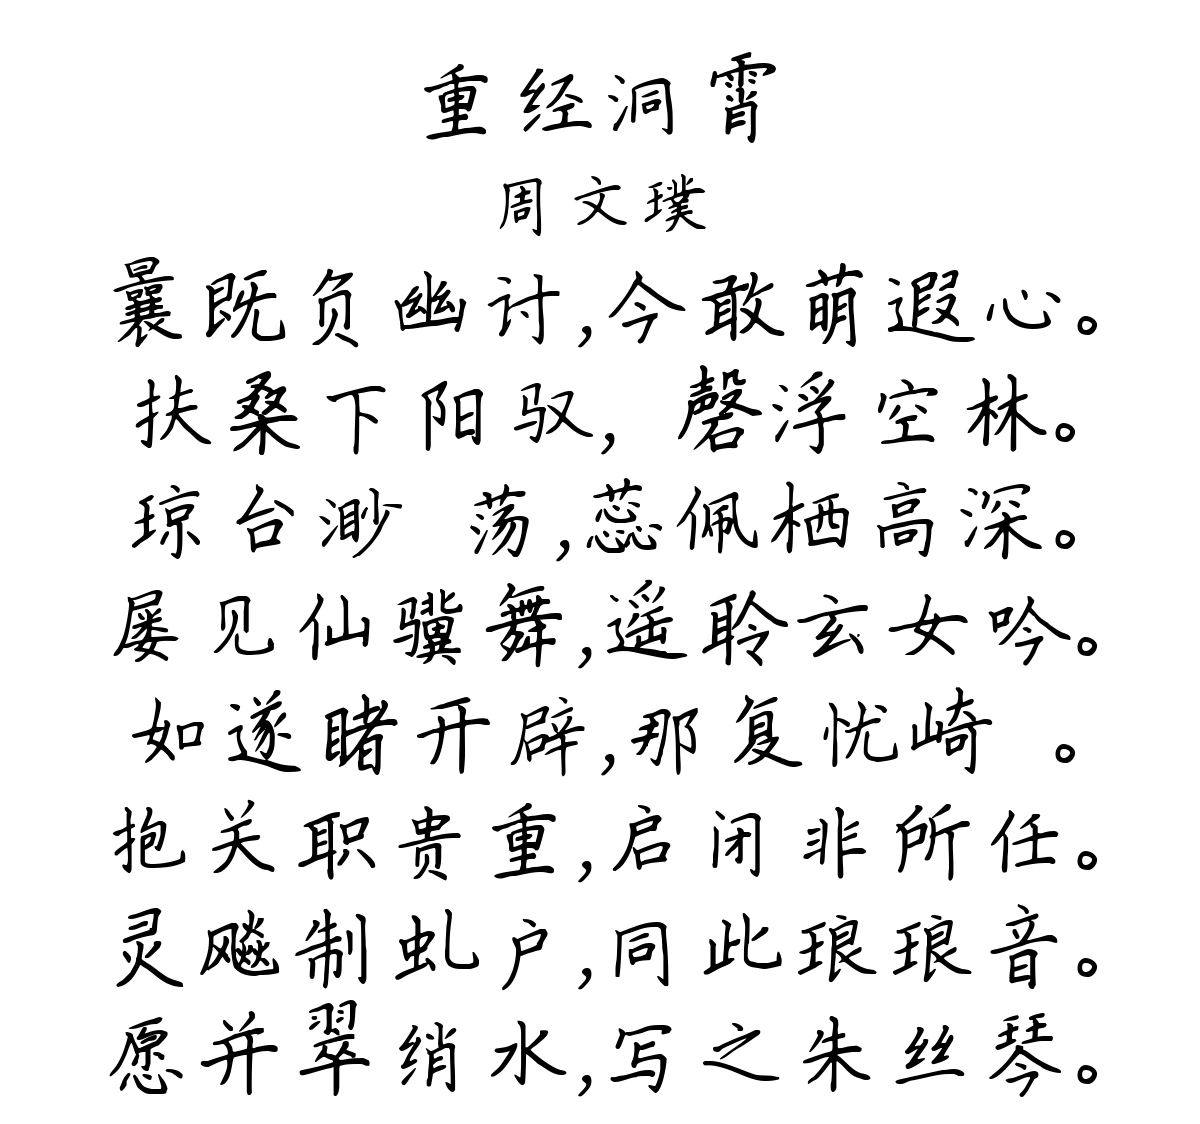 重经洞霄
周文璞
曩既负幽讨,今敢萌遐心。
扶桑下阳驭,磬浮空林。
琼台渺 荡,蕊佩栖高深。
屡见仙骥舞,遥聆玄女吟。
如遂睹开辟,那复忧崎 。
抱关职贵重,启闭非所任。
灵飚制虬户,同此琅琅音。
愿并翠绡水,写之朱丝琴。